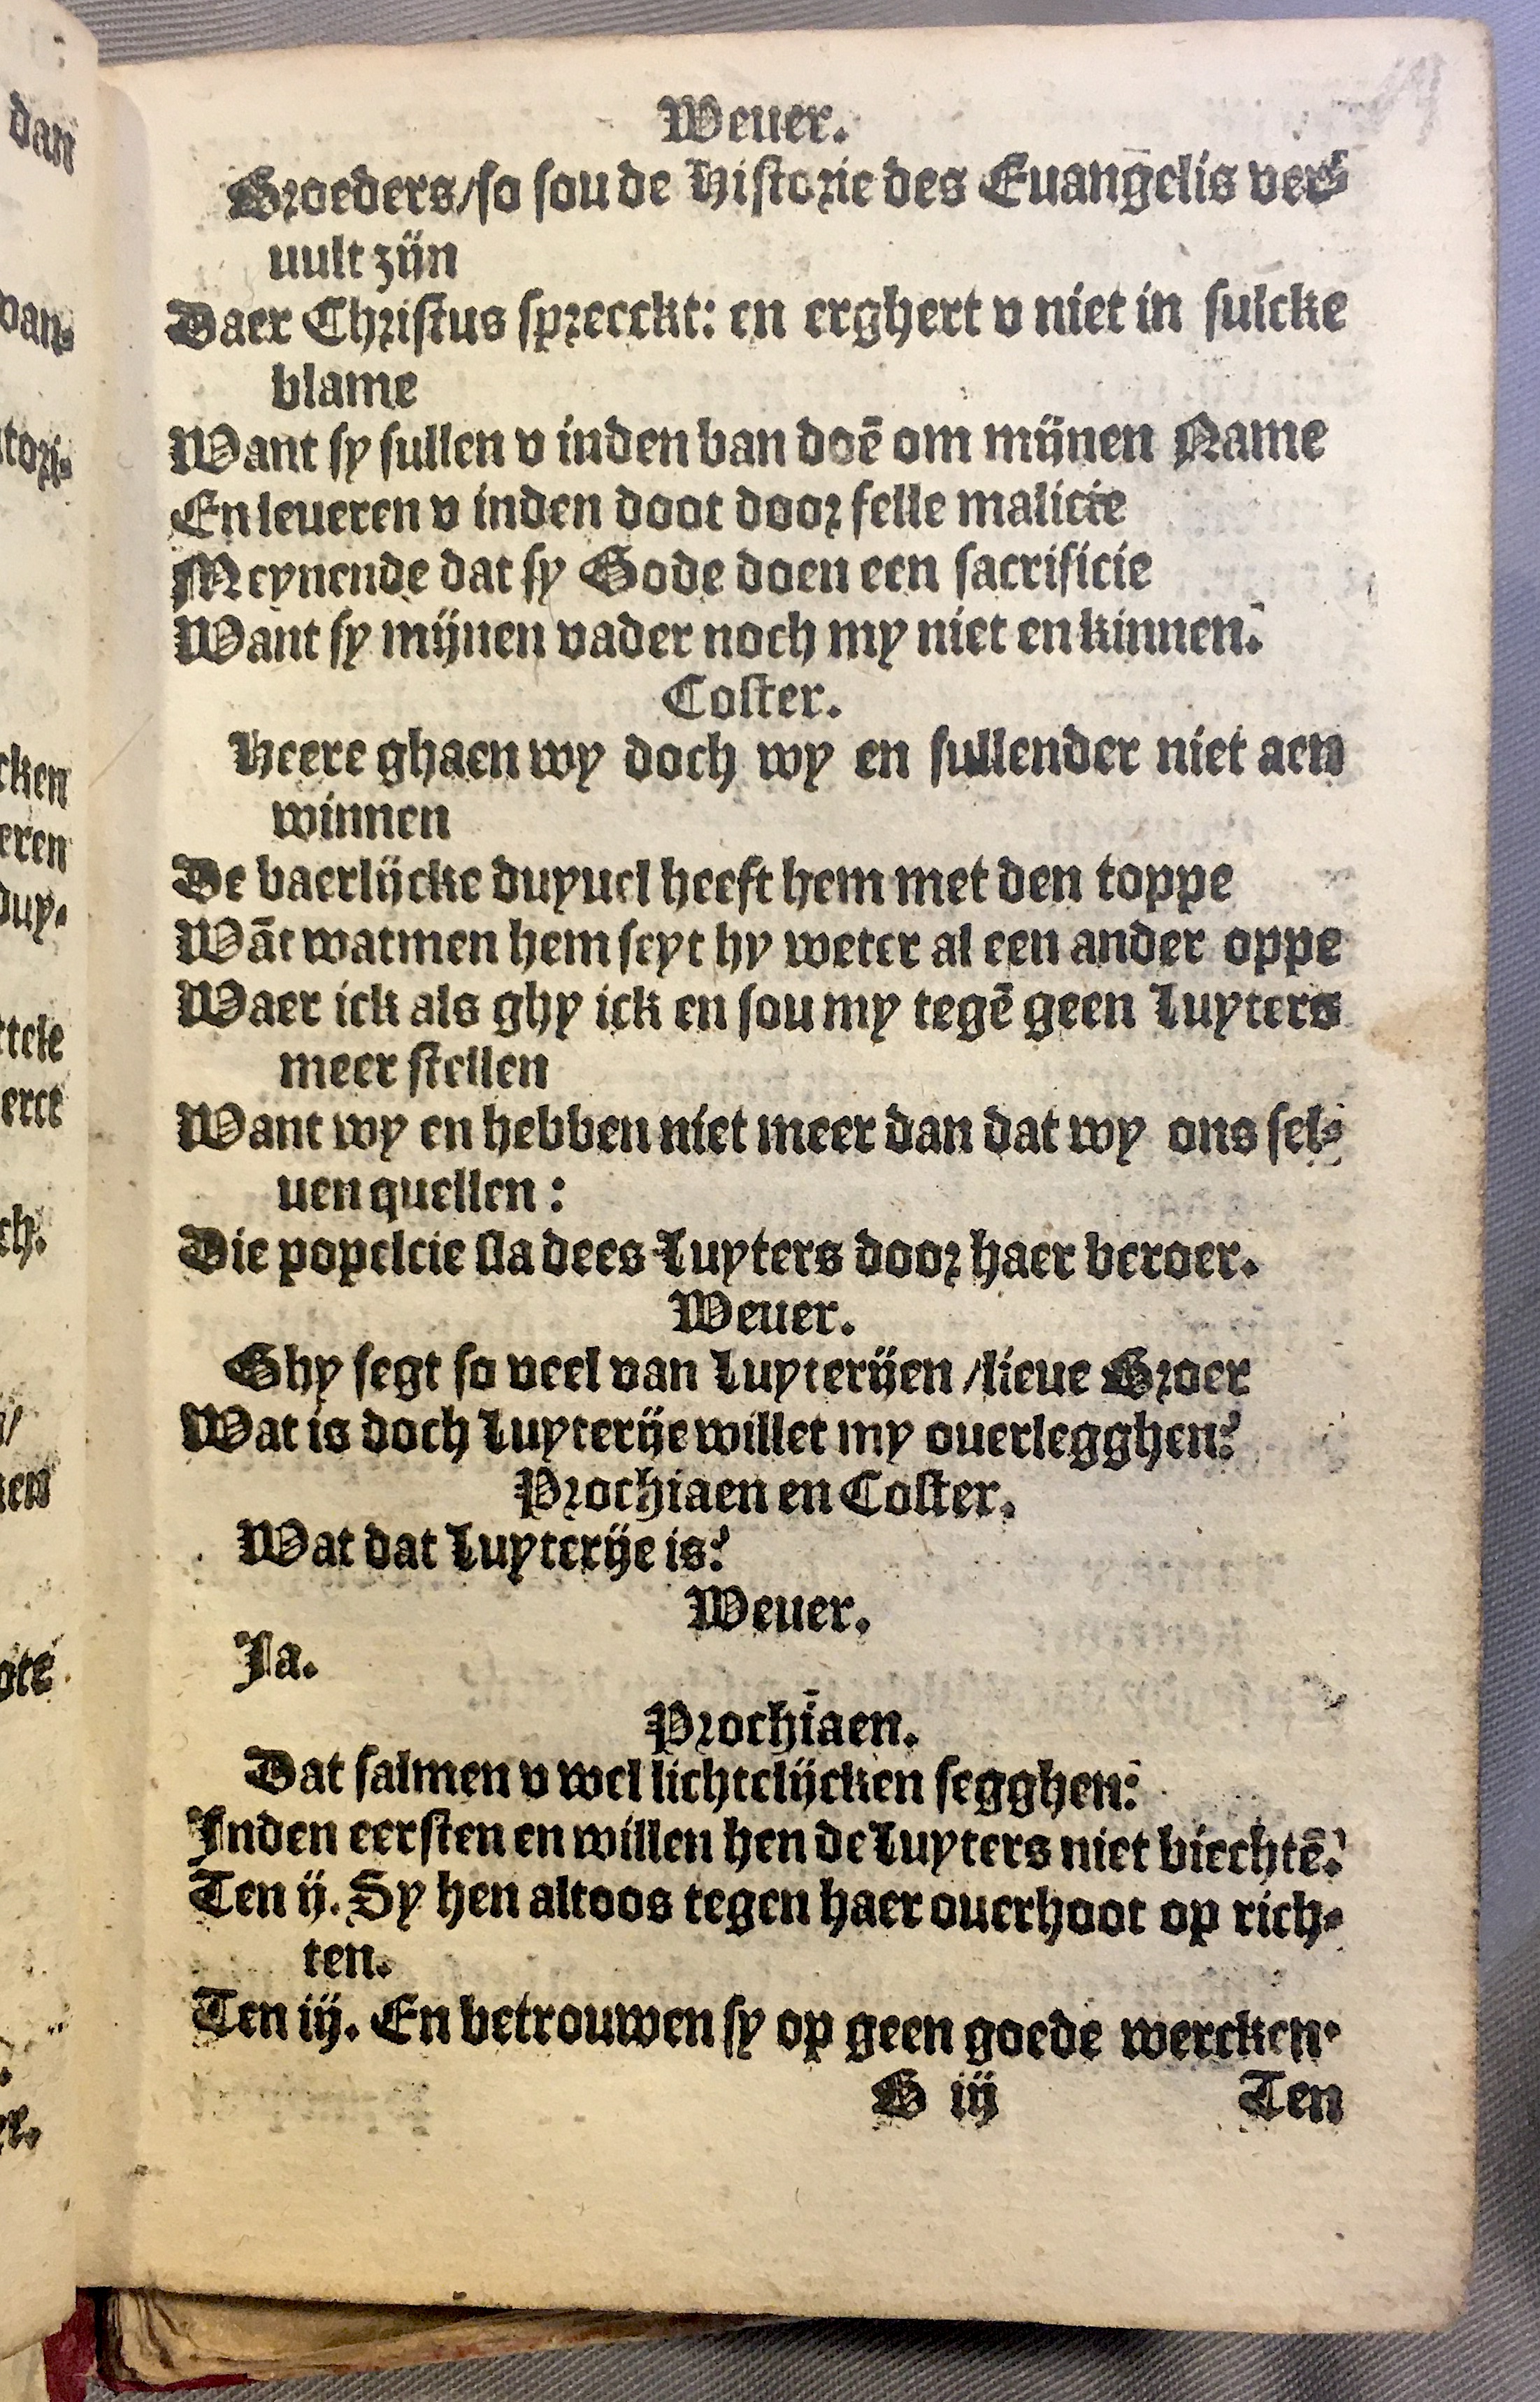 Weuer.
Broeders/so sou de Historie des Euangelis ver-
uult zijn
Daer Christus spreeckt: en erghert v niet in sulcke
blame
Want sy sullen v inden ban doē om mijnen Name
En leueren v inden doot door felle malicie
Meynende dat sy Gode doen een sacrificie
Want sy mijnen vader noch my niet en kinnen.
Coster.
Heere ghaen wy doch wy en sullender niet aen
winnen
De baerlijcke duyuel heeft hem met den toppe
Wāt watmen hem seyt hy weter al een ander oppe
Waer ick als ghy ick en sou my tegē geen Luyters
meer stellen
Want wy en hebben niet meer dan dat wy ons sel-
uen quellen :
Die popelcie sla dees Luyters door haer beroer.
Weuer.
Ghy segt so veel van Luyterijen/lieue Broer
Wat is doch Luyterije willet my ouerlegghen?
Prochiaen en Coster.
Wat dat Luyterije is?
Weuer.
Ja.
Prochiaen.
Dat salmen v wel lichtelijcken segghen:
Inden eersten en willen hen de Luyters niet biechtē.
Ten ij. Sy hen altoos tegen haer ouerhoot op rich-
ten.
Ten iij. En betrouwen sy op geen goede wercken.
B iij
Ten